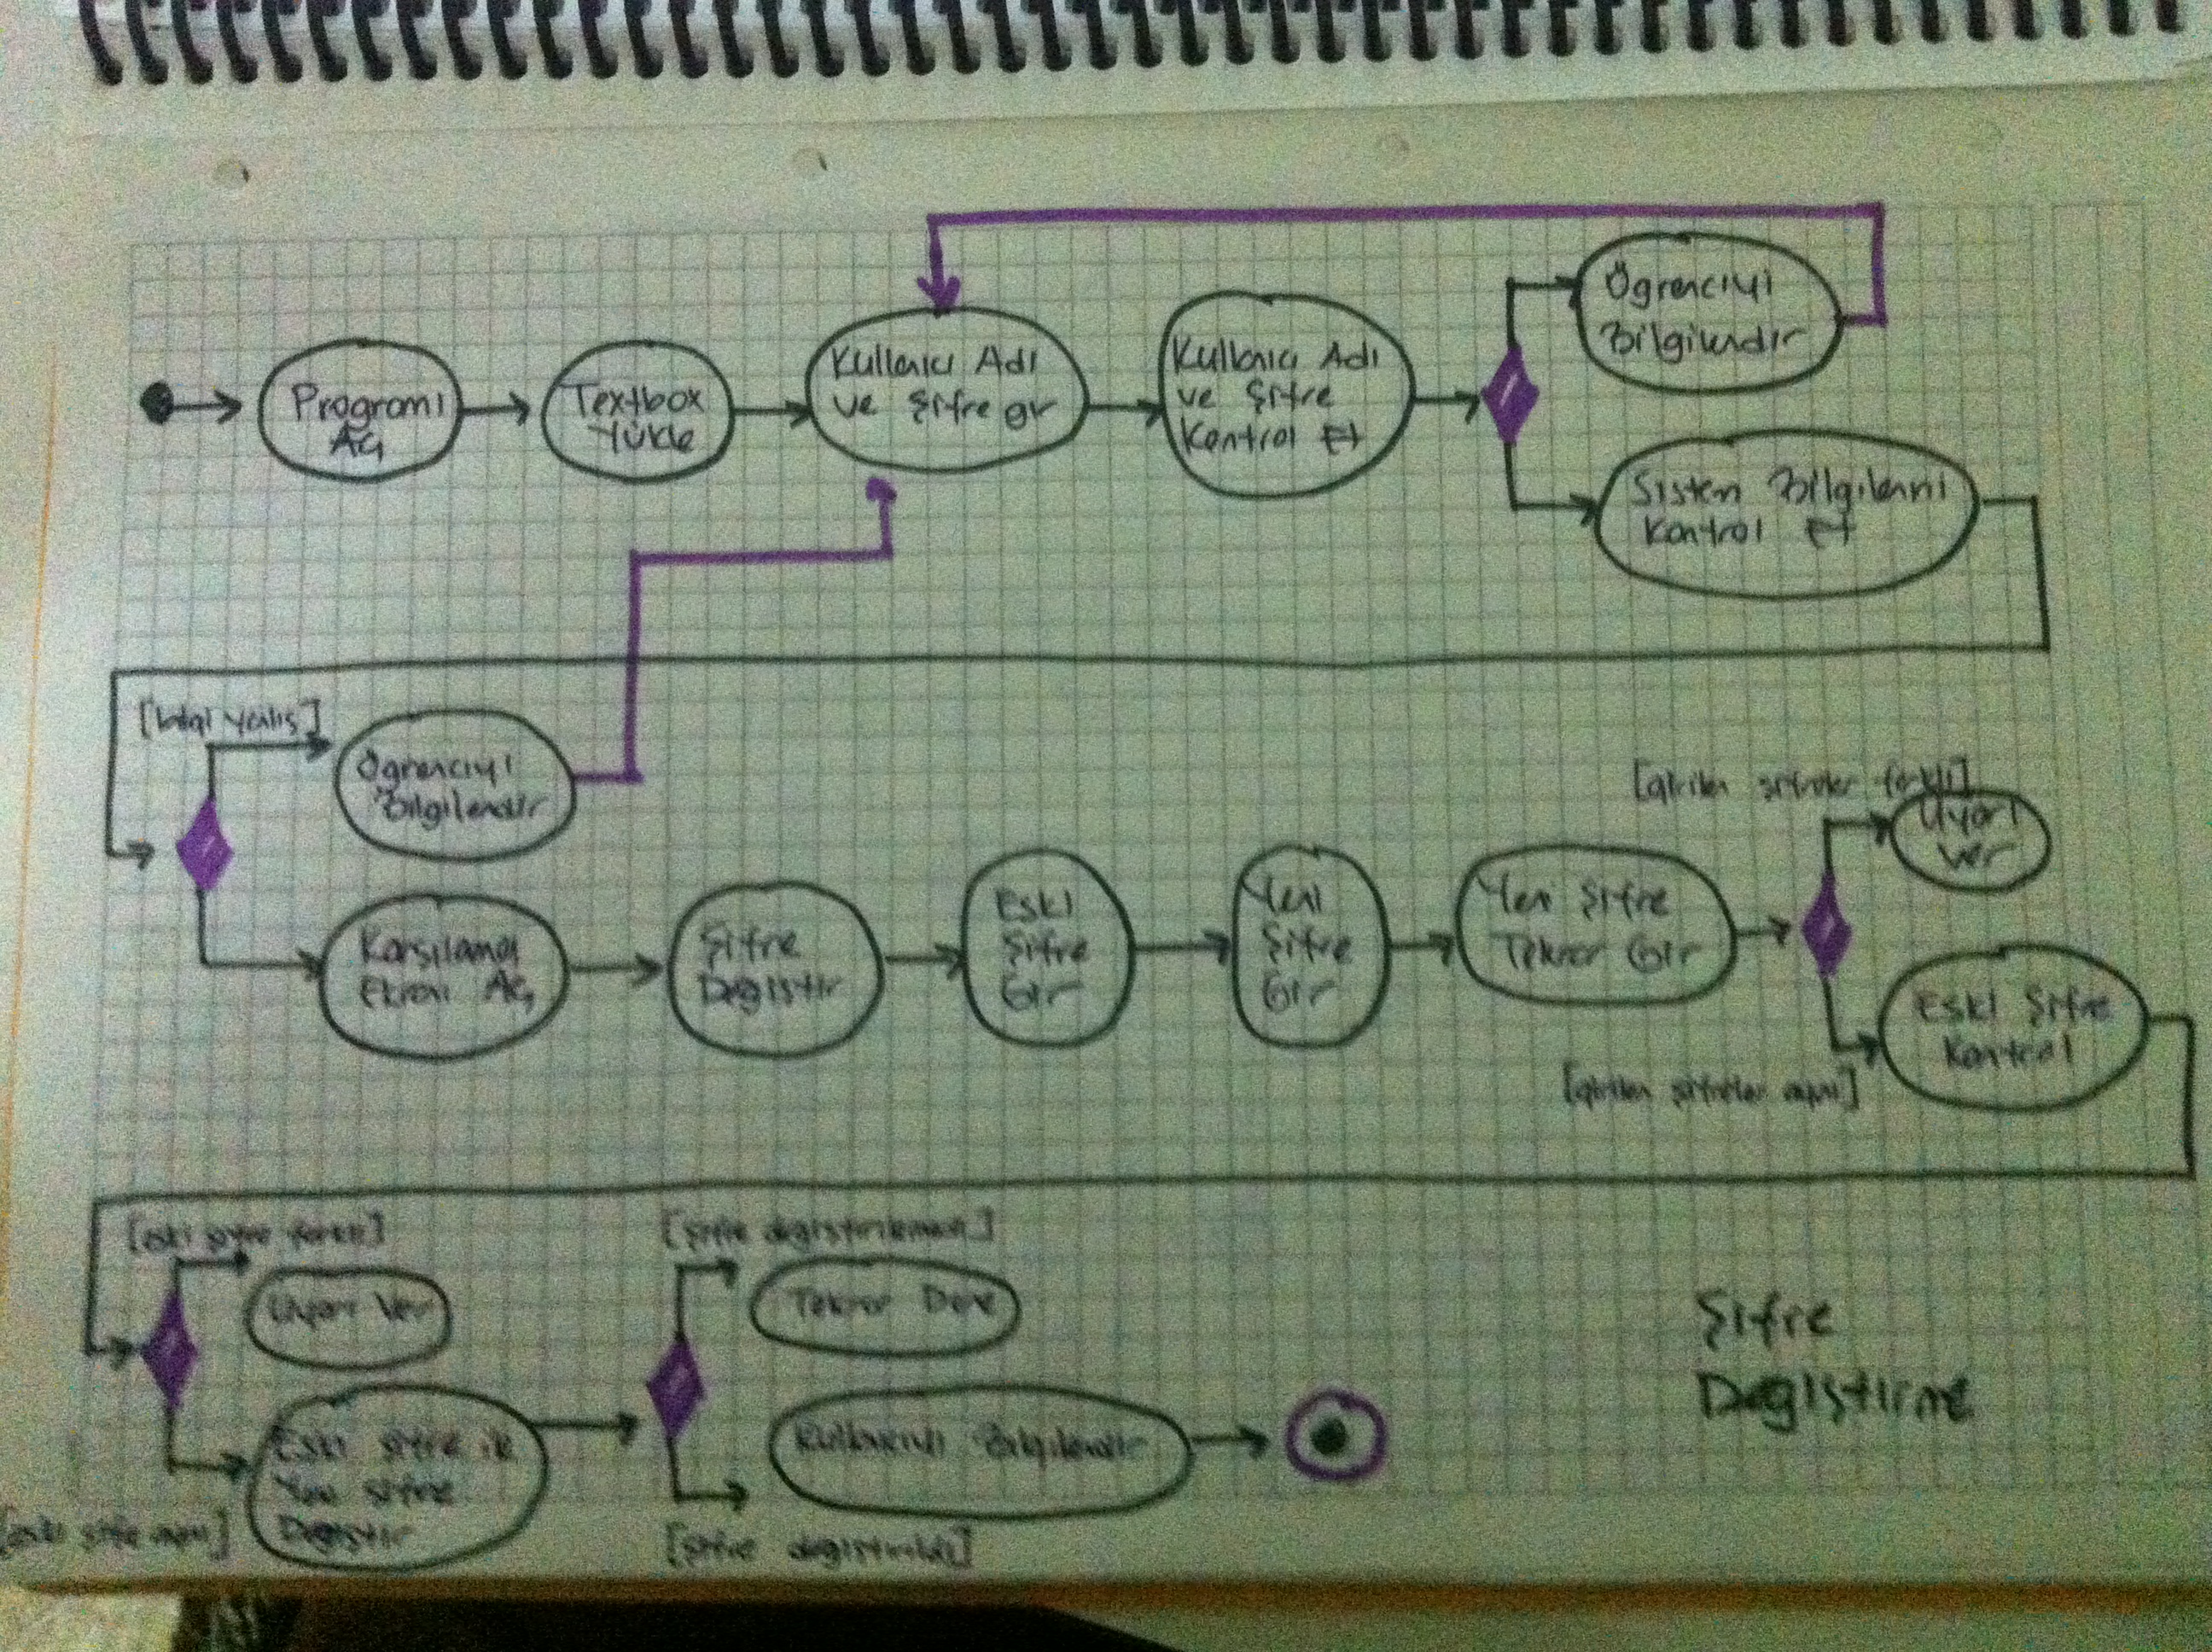 Programı
Aç
Textbox
Yükle
Kullanıcı Adı
ve Şifre gir
Kullanıcı Adı
ve Şifre
Kontrol Et
Öğrenciyi
Bilgilendir
Sistem Bilgilerini
Kontrol Et
[bilgi yanlış]
Öğrenciyi
Bilgilendir
Karşılama
Ekranı Aç
Şifre
Değiştir
Eski
Şifre
Gir
Yeni
Şifre
Gir
Yeni Şifre
Tekrar Gir
[girilen şifreler farklı]
Uyarı
Ver
[girilen şifreler aynı]
Eski Şifre
Kontrol
[eski şifre farklı]
Uyarı Ver
[eski şifre aynı]
Eski şifre ile
Yeni şifre
Değiştir
[şifre değiştirilemedi]
Tekrar Dene
Kullanıcıyı Bilgilendir
[şifre değiştirildi]
Şifre
Değiştirme